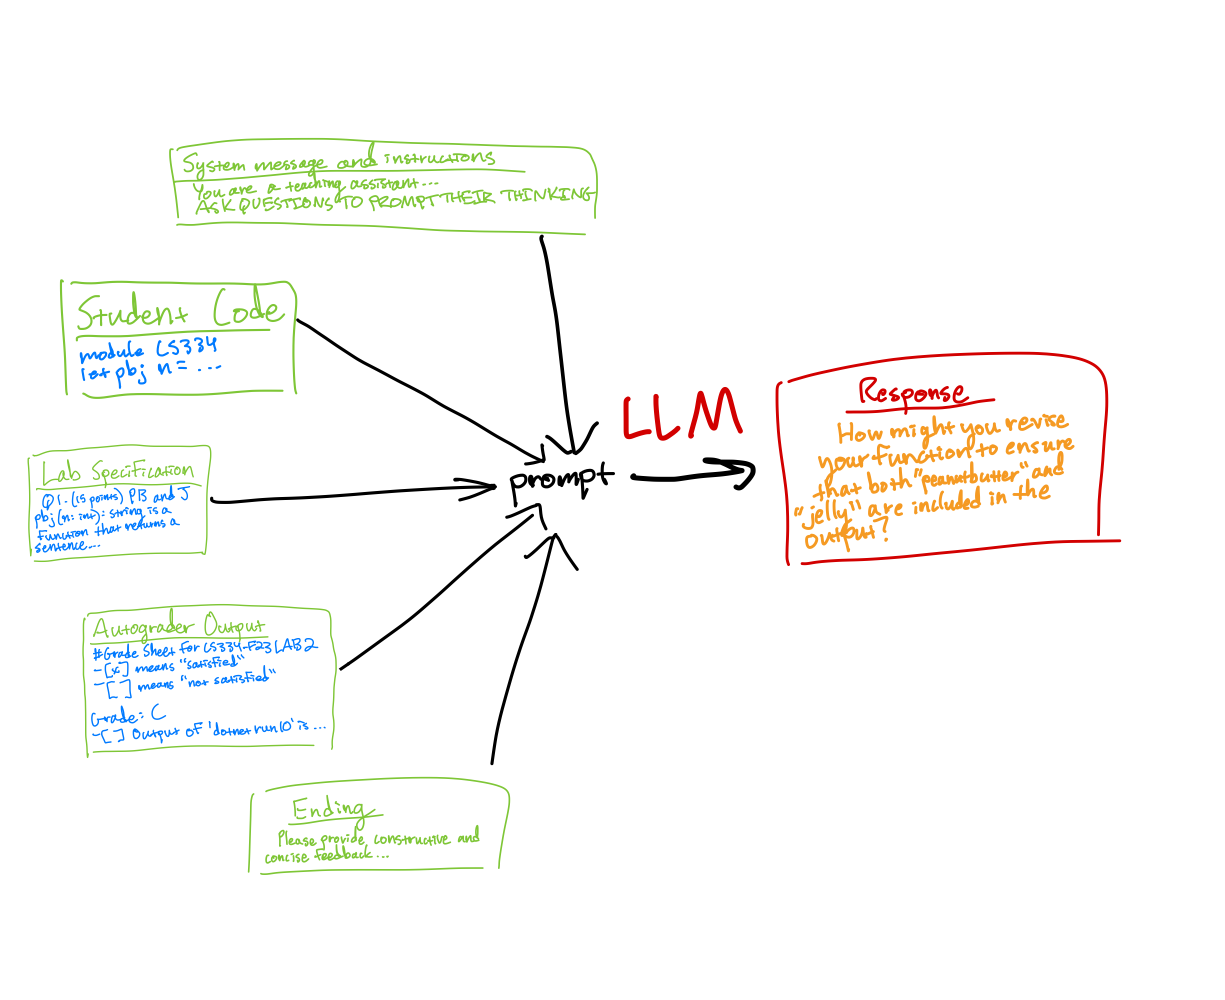 System message and instructions
You are a teaching assistant...
ASK QUESTIONS TO PROMPT THEIR THINKING
Student Code
module CS334
let pbj n = ...
Lab Specification
Q1. (15 points) PB and J
pbj(n: int): string is a
function that returns a
sentence...
Autograder Output
#Grade Sheet for CS334-F23 LAB2
-[x] means "satisfied"
-[ ] means "not satisfied"
Grade: C
-[ ] Output of 'dotnet run 10' is ...
Ending
Please provide constructive and
concise feedback...
prompt
LLM
Response
How might you revise
your function to ensure
that both "peanutbutter" and
"jelly" are included in the
output?